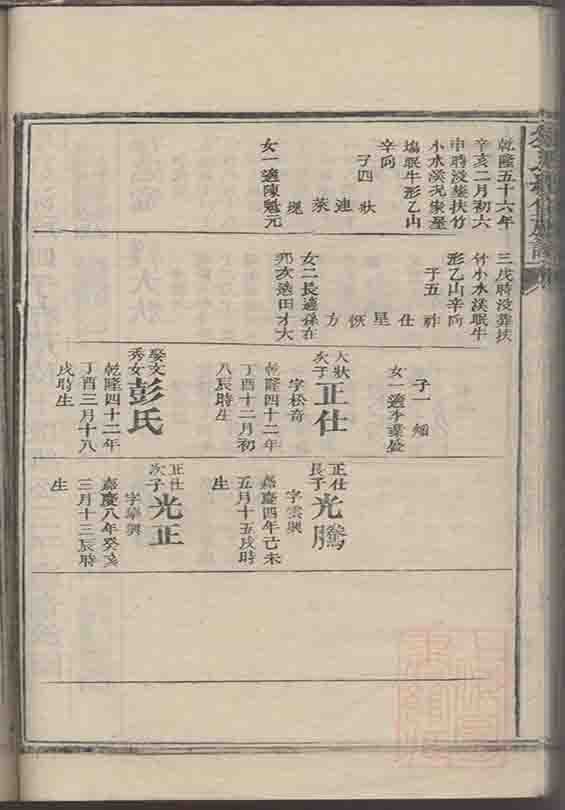 乾隆五十六年
辛亥二月初六
申時沒葬扶竹
小水溪況家屋
塲眠牛形乙山
辛向
子四
狀
連
萊
女一適陳魁元
三戌時沒葬扶
竹小水溪眠牛
形乙山辛向
子五
祚
仕
星
恢
方
女二長適孫在
邦次適田才大
子一
女一適李業盛
大狀
次子
正仕
字松奇
乾隆四十二年
丁酉十二月初
八辰時生
娶文
秀女
彭氏
乾隆四十二年
丁酉三月十八
戌時生
正仕
長子
光騰
字雲興
嘉慶四年己未
五月十五戌時
生
正仕
次子
光正
字華興
嘉慶八年癸亥
三月十三辰時
生